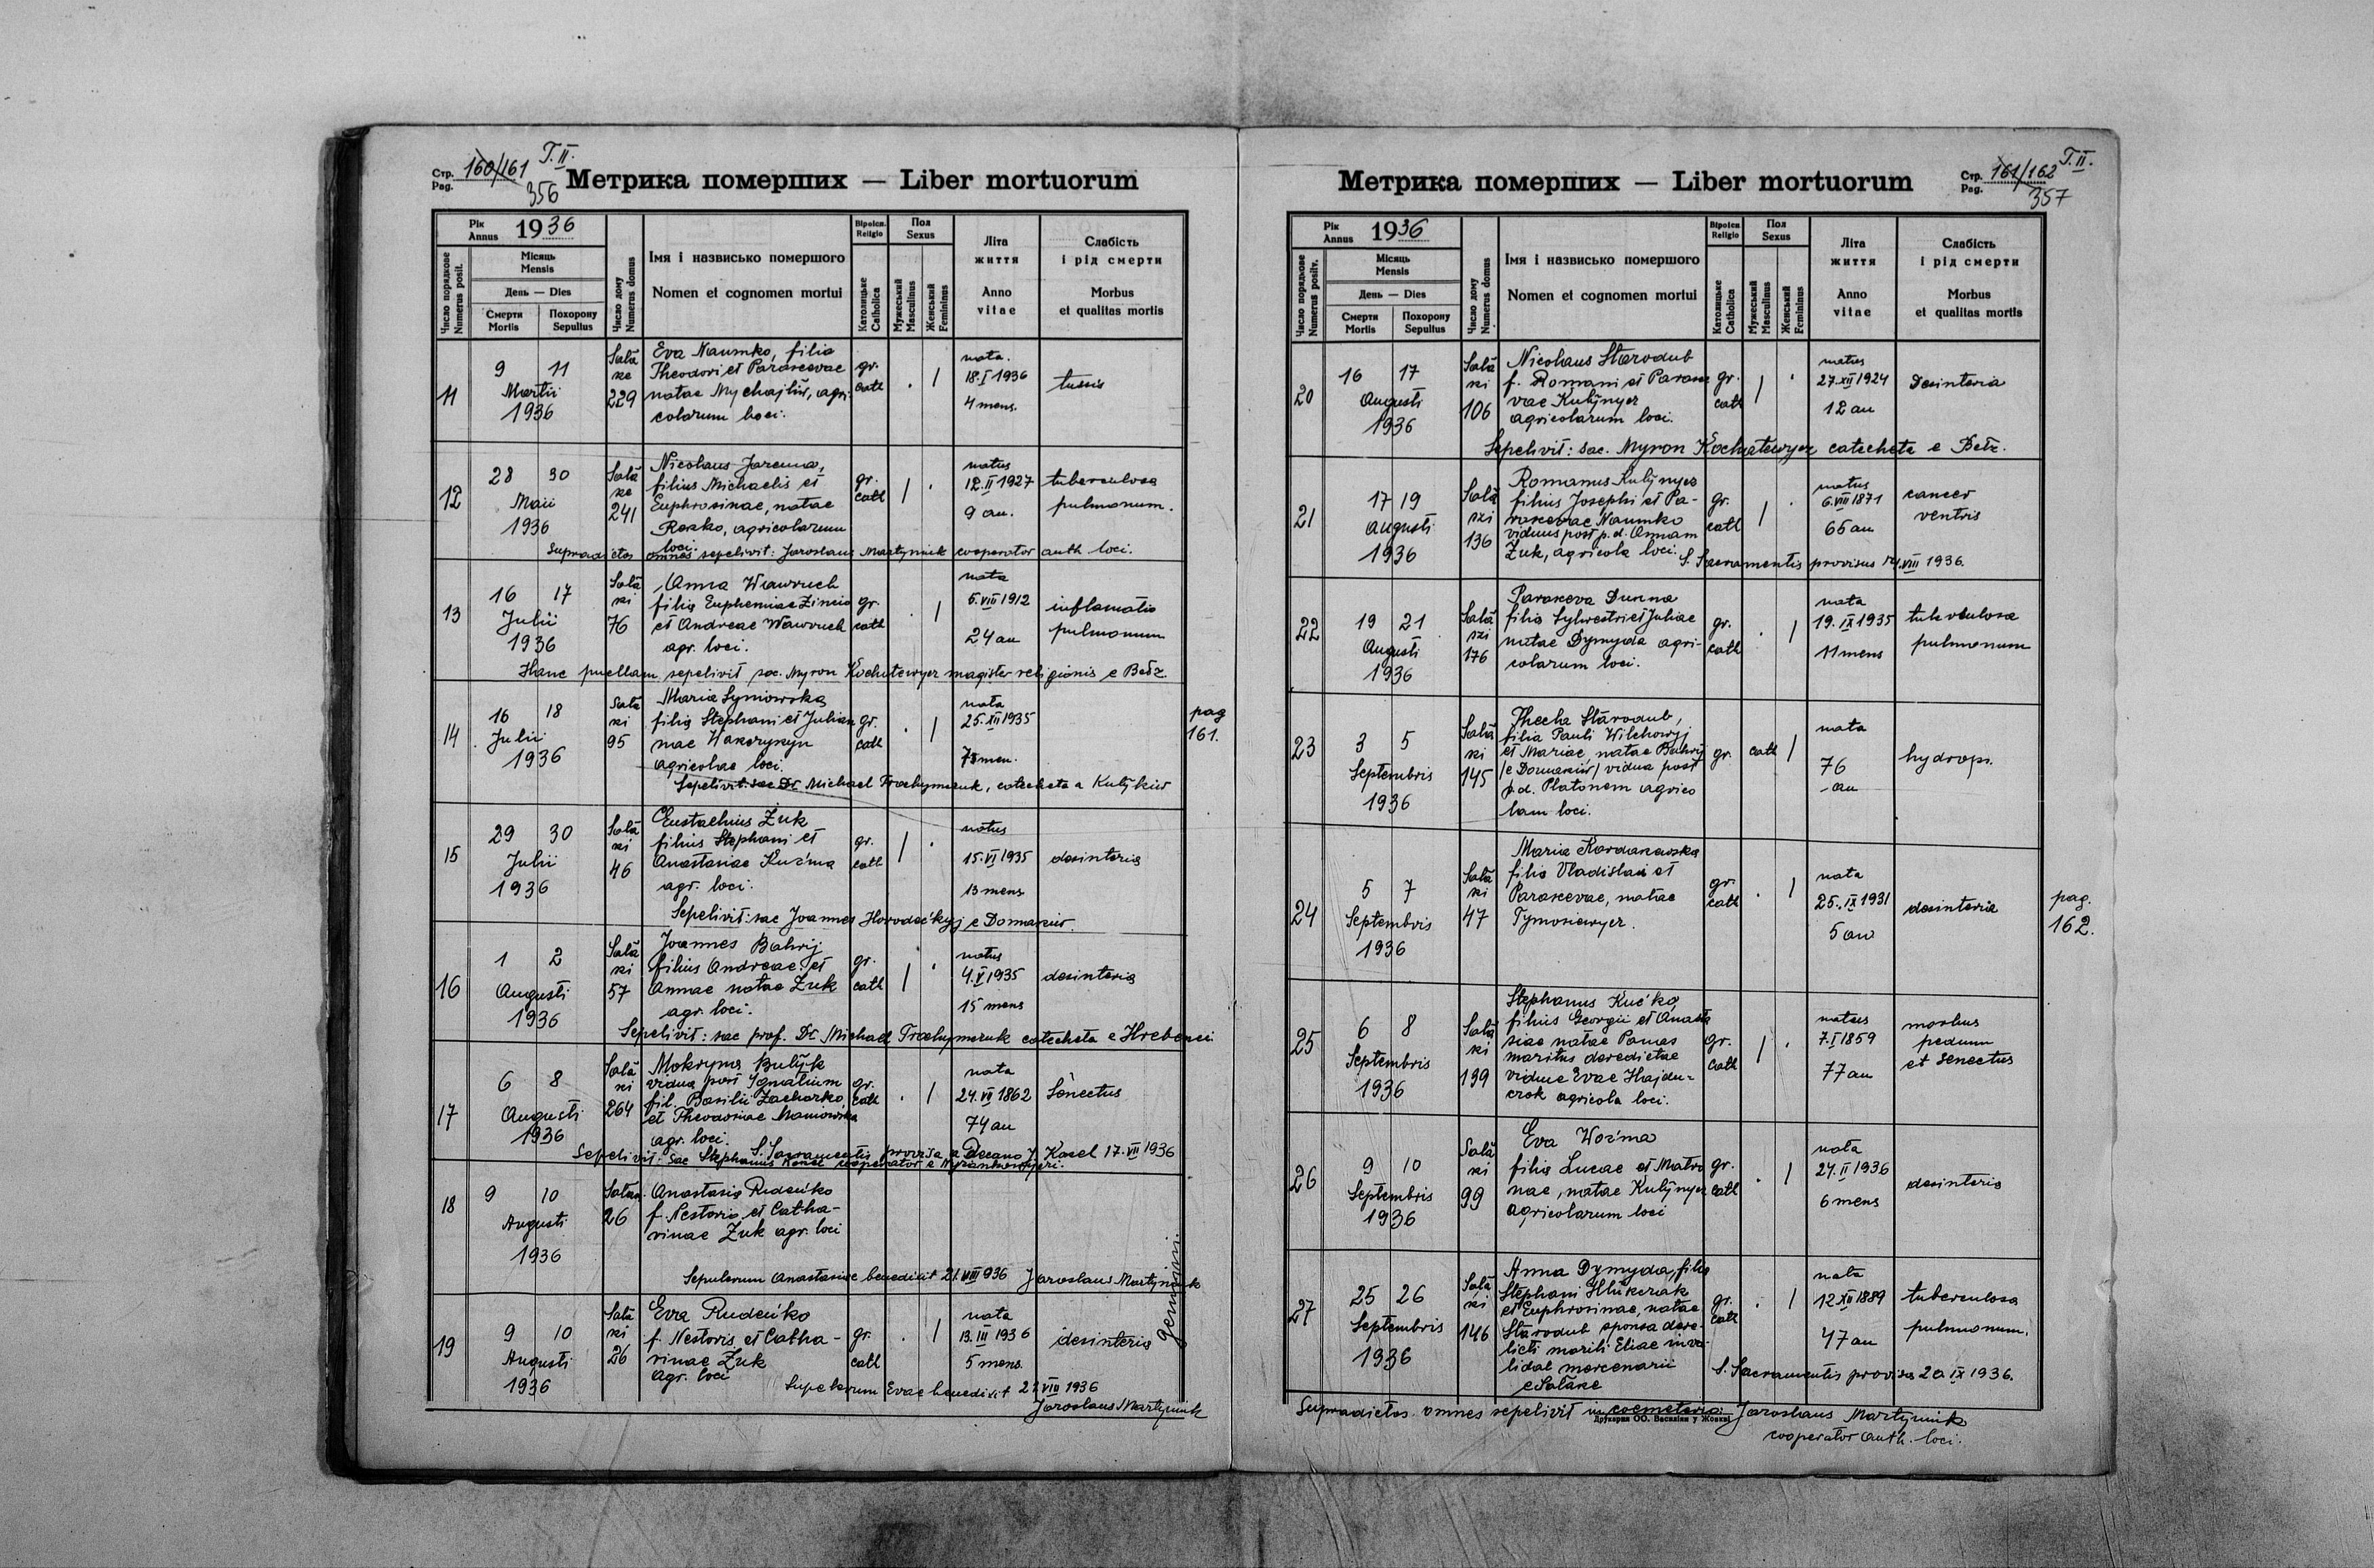 Стр. Pag. 160/161 T. II.
356
Метрика померших — Liber mortuorum
Рік Annus 1936
Число порядкове Numerus posit.
Місяць Mensis
День — Dies
Смерти Mortis
Похорону Sepultus
Число дому Numerus domus
Імя і назвисько помершого
Nomen et cognomen mortui
Віроісп. Religio
Католицьке Catholica
Пол Sexus
Мужеський Masculinus
Женський Femininus
Літа життя
Anno vitae
Слабість і рід смерти
Morbus et qualitas mortis
11
9 11
Martii
1936
Sała
ke
229
Eva Naumko, filia
Theodori et Parascevae
natae Mychajliw, agri-
colarum loci.
gr.
cath
nata.
18.I 1936
4 mens.
tussis
12
28 30
Maii
1936
Sała
ke
241
Nicolaus Jarema,
filius Michaelis et
Euphrosinae, natae
Resko, agricolarum
loci.
gr.
cath
natus
12.II 1927
9 an.
tuberculosa
pulmonum.
Supradictos omnes sepelivit: Jaroslaus Martyniuk cooperator auth loci.
13
16 17
Julii
1936
Sała
ki
76
Anna Wawruch
filia Euphemiae Zincio
et Andreae Wawruch
agr. loci.
gr.
cath
nata
5.VIII 1912
24 an
inflamatio
pulmonum
Hanc puellam sepelivit sac. Myron Kochutewycz magister religionis e Bełz.
14
16 18
Julii
1936
Sała
ki
95
Maria Syniowska
filia Stephani et Julian
nae
agricolae loci.
gr.
cath
nata
25.XII 1935
7 men.
pag
161.
Sepelivit: sac Dr Michael Trochymczuk, catecheta a Kulykiw
15
29 30
Julii
1936
Sała
ki
46
Eustachius Żuk
filius Stephani et
Anastasiae Kuźma
agr. loci.
gr.
cath
natus
15.VI 1935
13 mens
desinteria
Sepelivit: sac Joannes Horodećkyj e Domasziw.
16
1 2
Augusti
1936
Sała
ki
57
Joannes Bahrij
filius Andreae et
Annae natae Żuk
agr. loci.
gr.
cath
natus
4.V 1935
15 mens
desinteria
Sepelivit: sac prof. Dr. Michael Trochymczuk catecheta e Hrebenci
17
6 8
Augusti
1936
Sała
ki
264
Mokryna Bułyk
vidua post Ignatium
fil. Basilii Zacharko
et Theodosiae Maniowska
agr. loci.
gr.
cath
nata
24.VII 1862
74 an
Senectus
S. Sacramentis provisa a Decano J. Kosel 17.VII 1936
Sepelivit: sac Stephanus cooperator e
18
9 10
Augusti
1936
Sałas.
26
Anastasia Rudeńko
f. Nestoris et Catha-
rinae Żuk agr. loci
Sepulcrum Anastasiae benedixit 21.VIII 936 Jaroslaus Martyniuk
19
9 10
Augusti
1936
Sała
ki
26
Eva Rudeńko
f. Nestoris et Catha-
rinae Żuk
agr. loci
gr.
cath
nata
13.III 1936
5 mens.
desinteria
gemini.
Sepulcrum Evae benedixit 21 VIII 1936
Jaroslaus Martyniuk
Стр. Pag. 161/162 T. II.
357
Метрика померших — Liber mortuorum
Рік Annus 1936
Число порядкове Numerus positv.
Місяць Mensis
День — Dies
Смерти Mortis
Похорону Sepultus
Число дому Numerus domus
Імя і назвисько помершого
Nomen et cognomen mortui
Віроісп Religio
Католицьке Catholica
Пол Sexus
Мужеський Masculinus
Женський Femininus
Літа життя
Anno vitae
Слабість і рід смерти
Morbus et qualitas mortis
20
16 17
Augusti
1936
Sała
ki
106
Nicolaus Starodub
f. Romani et Parasce
vae Kulynycz
agricolarum loci.
gr.
cath
natus
27.XII 1924
12 an
Desinteria
Sepelivit: sac. Myron Kochutewycz catecheta e Bełz.
21
17 19
Augusti
1936
Sała
szi
136
Romanus Kulynycz
filius Josephi et Pa-
rascevae Naumko
viduus post p.d. Annam
Żuk, agricola loci.
gr.
cath
natus
6.VIII 1871
65 an
cancer
ventris
S. Sacramentis provisus 14.VIII 1936.
22
19 21
Augusti
1936
Sała
szi
176
Parasceva Dunna
filia Sylvestri et Juliae
natae Dymyda agri-
colarum loci.
gr.
cath
nata
19.IX 1935
11 mens
tuberculosa
pulmonum
23
3 5
Septembris
1936
Sała
ki
145
Thecla Starodub,
filia Pauli Wilchowyj
et Mariae, natae Bahrij
/e Domasziw/ vidua post
p.d. Platonem agrico
lam loci.
gr. cath
nata
76
an
hydrops.
24
5 7
Septembris
1936
Sała
ki
47
Maria Kordanowska
filia Vladislai et
Parascevae, natae
Tymosiewycz.
gr.
cath
nata
25.IX 1931
5 an
desinteria
pag.
162.
25
6 8
Septembris
1936
Sała
ki
139
Stephanus Kućko
filius Georgii et Anasta
siae natae Panas
maritus derelictae
viduae Evae Hajdu-
czok agricola loci.
gr.
cath
natus
7.I 1859
77 an
morbus
pedum
et senectus
26
9 10
Septembris
1936
Sała
ki
99
Eva Woźma
filia Lucae et Matro
nae, natae Kulynycz
agricolarum loci
gr.
cath
nata
24.II 1936
6 mens
desinteria
27
25 26
Septembris
1936
Sała
ki
146
Anna Dymyda, filia
Stephani
et Euphrosinae, natae
Starodub sponsa dere-
licti mariti Eliae inva-
lidae mercenarii
e Sałasze
gr.
cath
nata
12.XII 1889
47 an
tuberculosa
pulmonum.
S. Sacramentis provisa 20 IX 1936.
Supradictos omnes sepelivit in coemeterio: Jaroslaus Martyniuk
cooperator auth. loci.
Друкарня ОО. Василіян у Жовкві